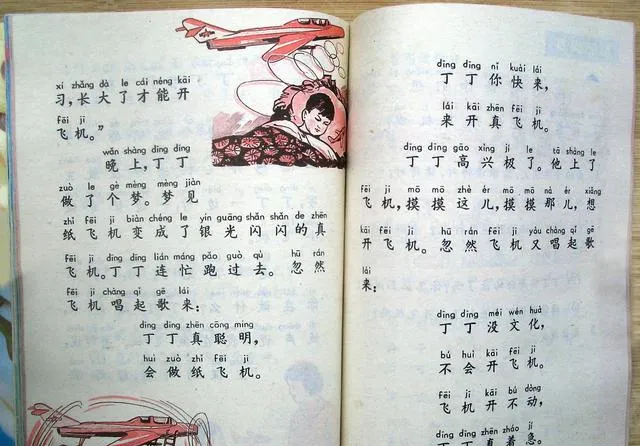 xí zhǎng dà le cái néng kāi
习，长大了才能开
fēi jī
飞机。”
wǎn shàng dīng dīng
晚上，丁丁
zuò le gè mèng mèng jiàn
做了个梦。梦见
zhǐ fēi jī biàn chéng le yín guāng shǎn shǎn de zhēn
纸飞机变成了银光闪闪的真
fēi jī dīng dīng lián máng pǎo guò qù hū rán
飞机。丁丁连忙跑过去。忽然
fēi jī chàng qǐ gē lái
飞机唱起歌来：
dīng dīng zhēn cōng míng
丁丁真聪明，
huì zuò zhǐ fēi jī
会做纸飞机。
dīng dīng nǐ kuài lái
丁丁你快来，
lái kāi zhēn fēi jī
来开真飞机。
dīng dīng gāo xìng jí le tā shàng le
丁丁高兴极了。他上了
fēi jī mō mō zhè ér mō mō nà ér xiǎng
飞机，摸摸这儿，摸摸那儿，想
kāi fēi jī hū rán fēi jī yòu chàng qǐ gē
开飞机。忽然飞机又唱起歌
lái
来：
dīng dīng méi wén huà
丁丁没文化，
bú huì kāi fēi jī
不会开飞机。
fēi jī kāi bú dòng
飞机开不动，
dīng dīng zhēn zháo jí
丁丁真着急。